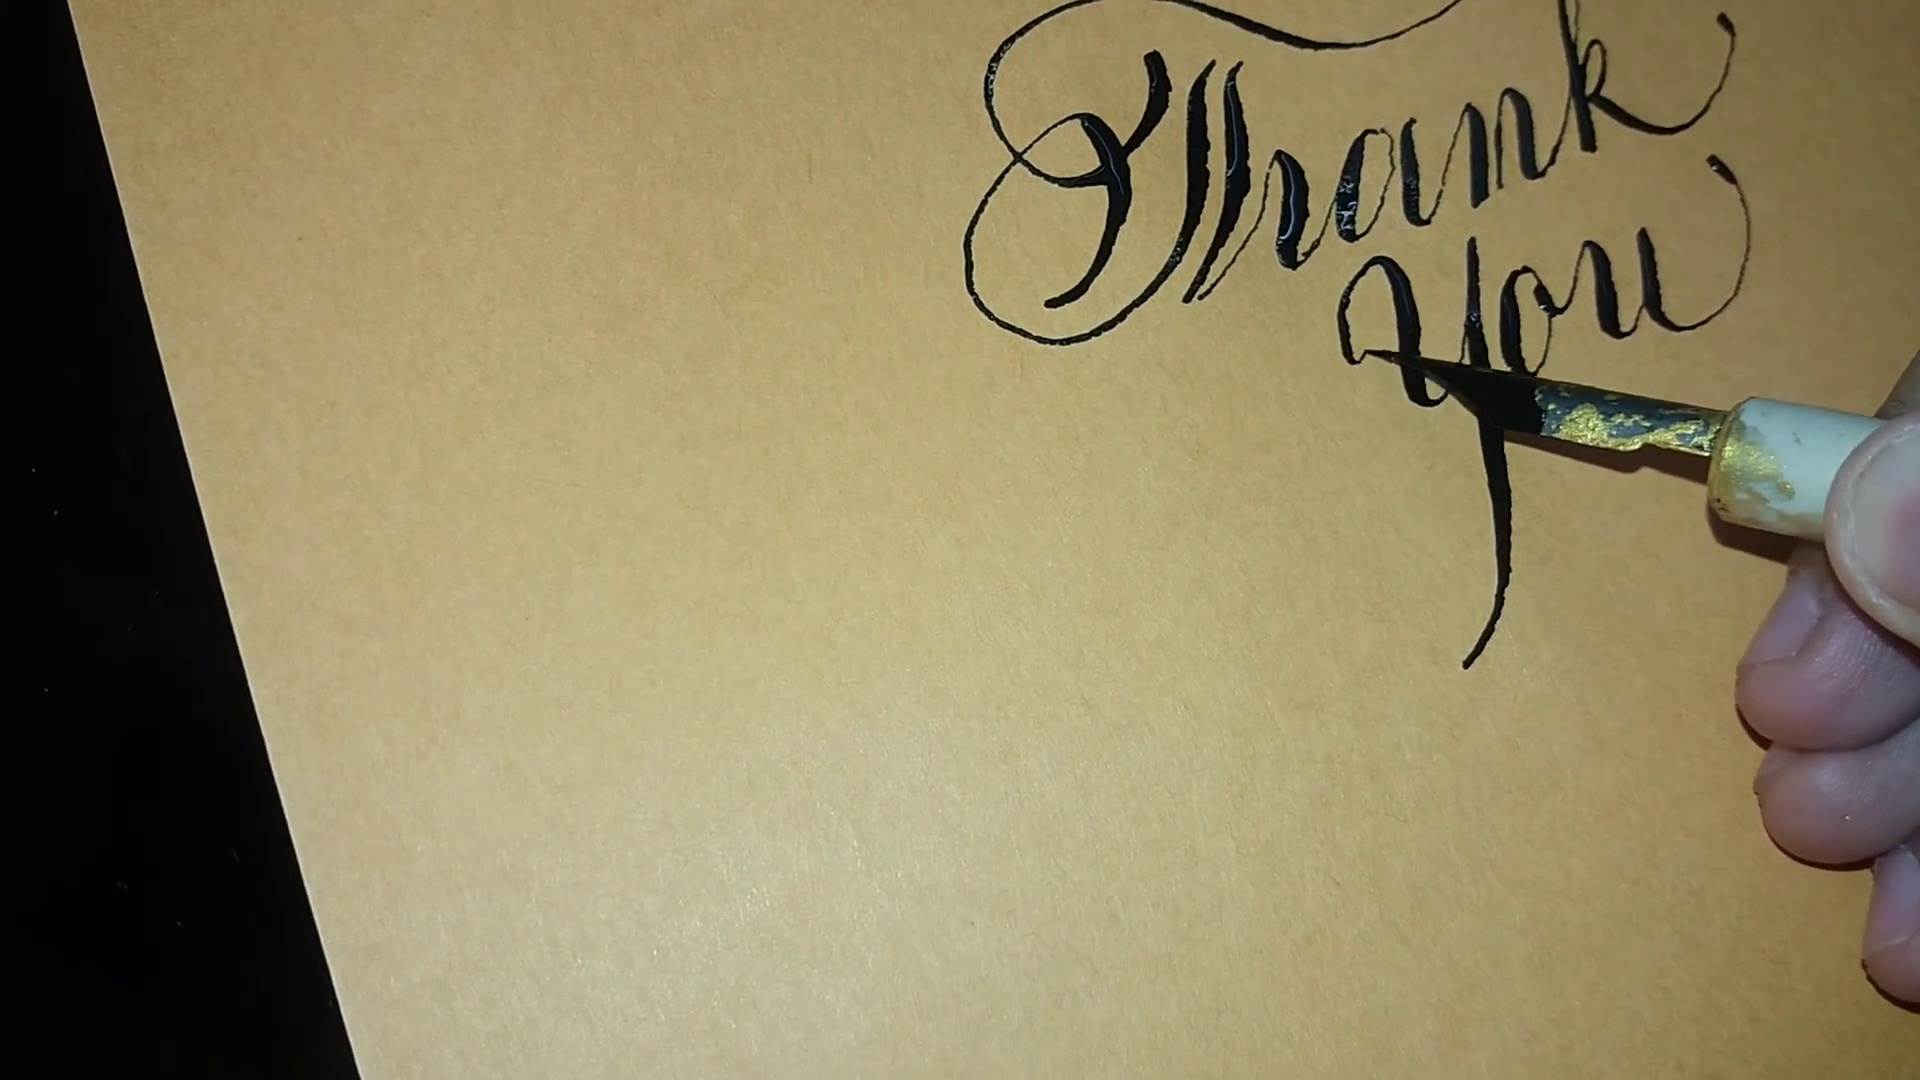 Thank
You